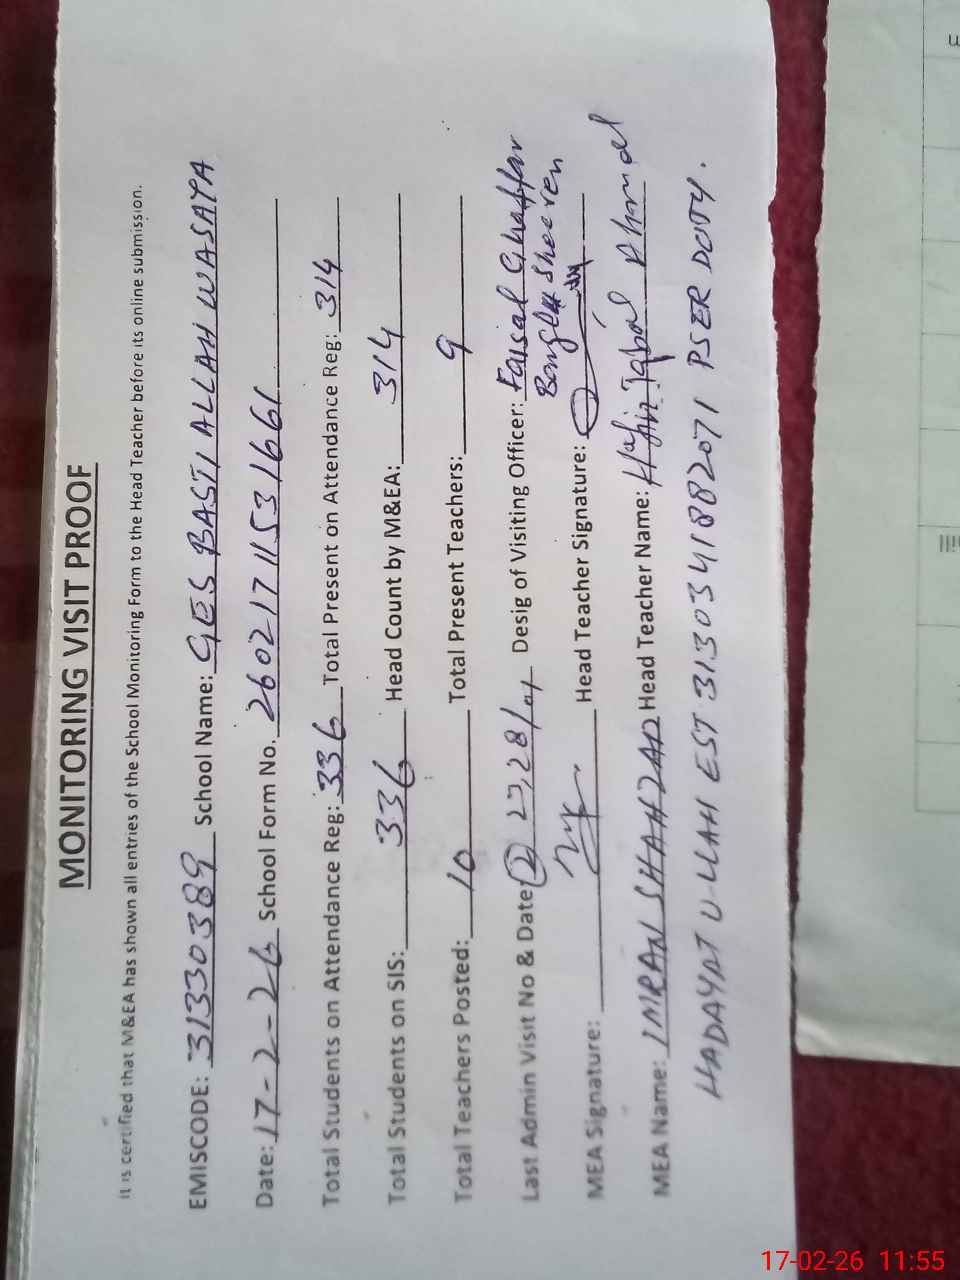 MONITORING VISIT PROOF
It is certified that M&EA has shown all entries of the School Monitoring Form to the Head Teacher before its online submission.
EMISCODE: 31330389 School Name: GES BASTI ALLAH WASAYA
Date: 17-2-26 School Form No. 260217115316 61
Total Students on Attendance Reg: 336 Total Present on Attendance Reg: 314
Total Students on SIS: 336 Head Count by M&EA: 314
Total Teachers Posted: 10 Total Present Teachers: 9
Last Admin Visit No & Date: 2 Desig of Visiting Officer: Faisal Ghaffar
MEA Signature: Head Teacher Signature:
MEA Name: IMRAN SHAHZAD Head Teacher Name: Hafiz Iqbal Ahmad
HADAYAT ULLAH EST 3130341882071 PSER DUTY.
17-02-26 11:55